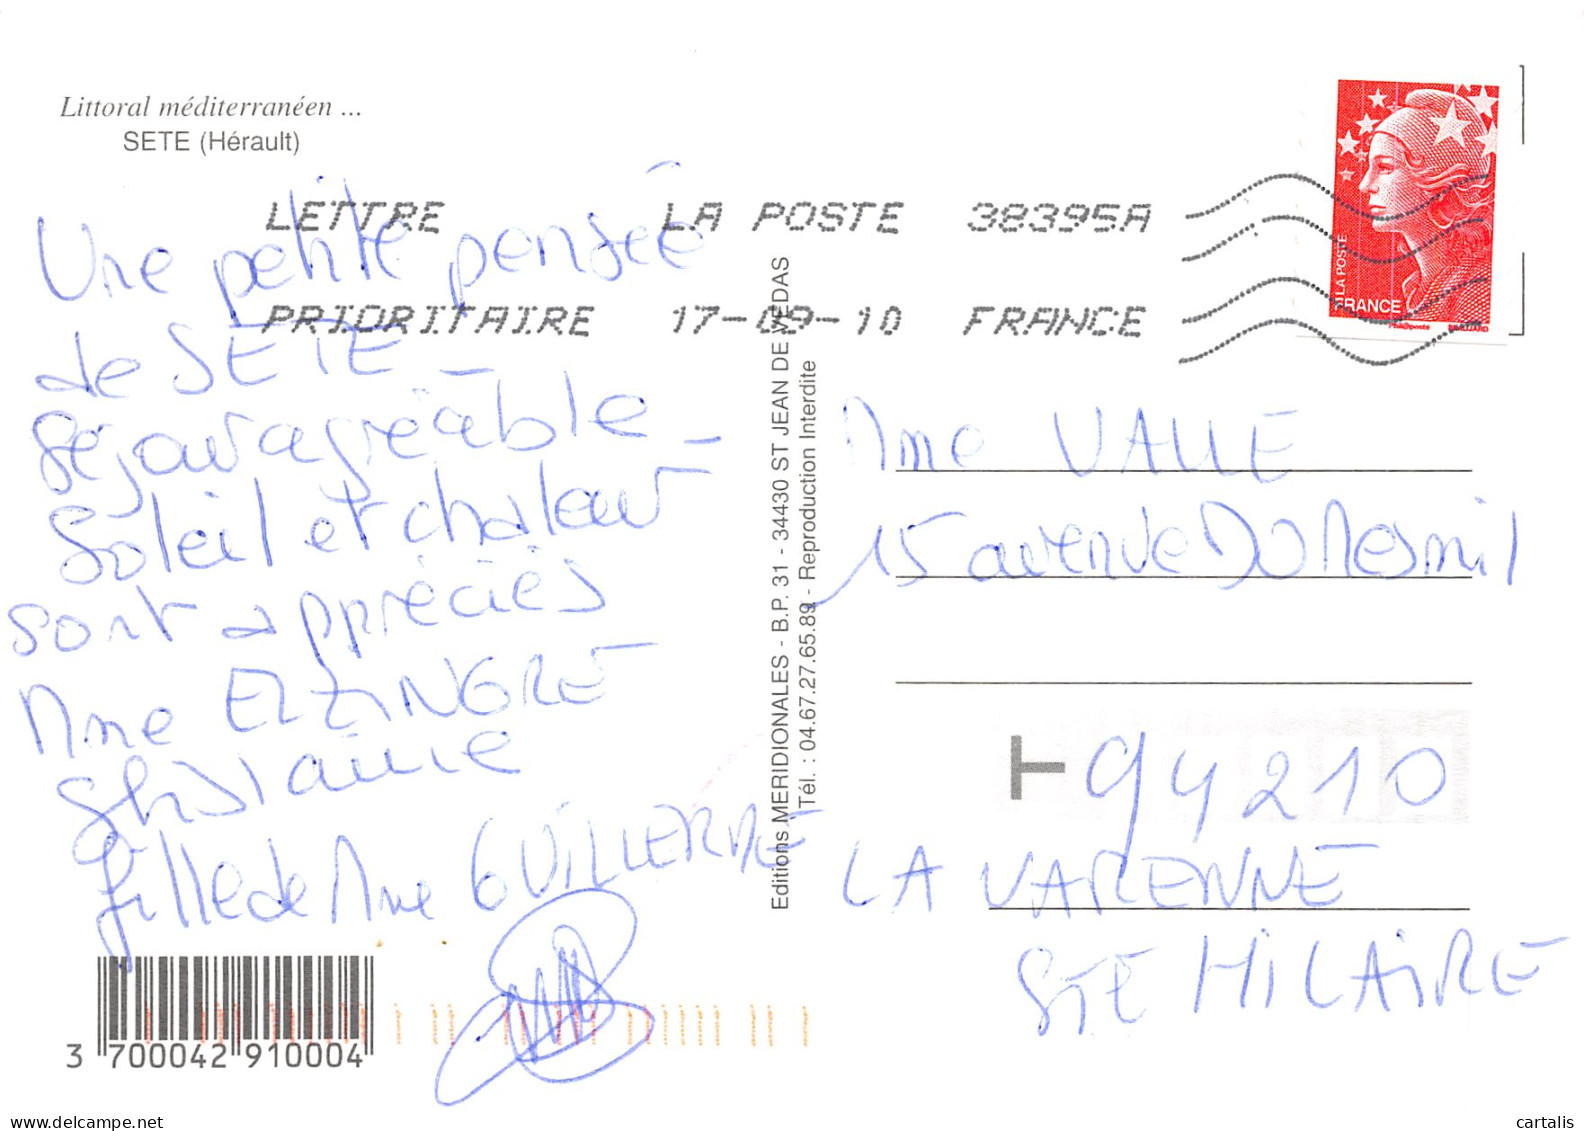 Littoral méditerranéen ...
SETE (Hérault)
LETTRE LA POSTE 38395A
PRIORITAIRE 17-09-10 FRANCE
LA POSTE
FRANCE
Phil@poste
Une petite pensée
de SETE
Séjour agréable
Soleil et chaleur -
sont appréciés
Mme ELZINGRE
Ghislaine
fille de Mme GUILLERME
Editions MERIDIONALES - B.P. 31 - 34430 ST JEAN DE VEDAS
Tél. : 04.67.27.65.89 - Reproduction Interdite
Mme VALLE
15 avenue DU Mesnil
T 94210
LA VARENNE
STE HILAIRE
3 700042 910004
cartalis